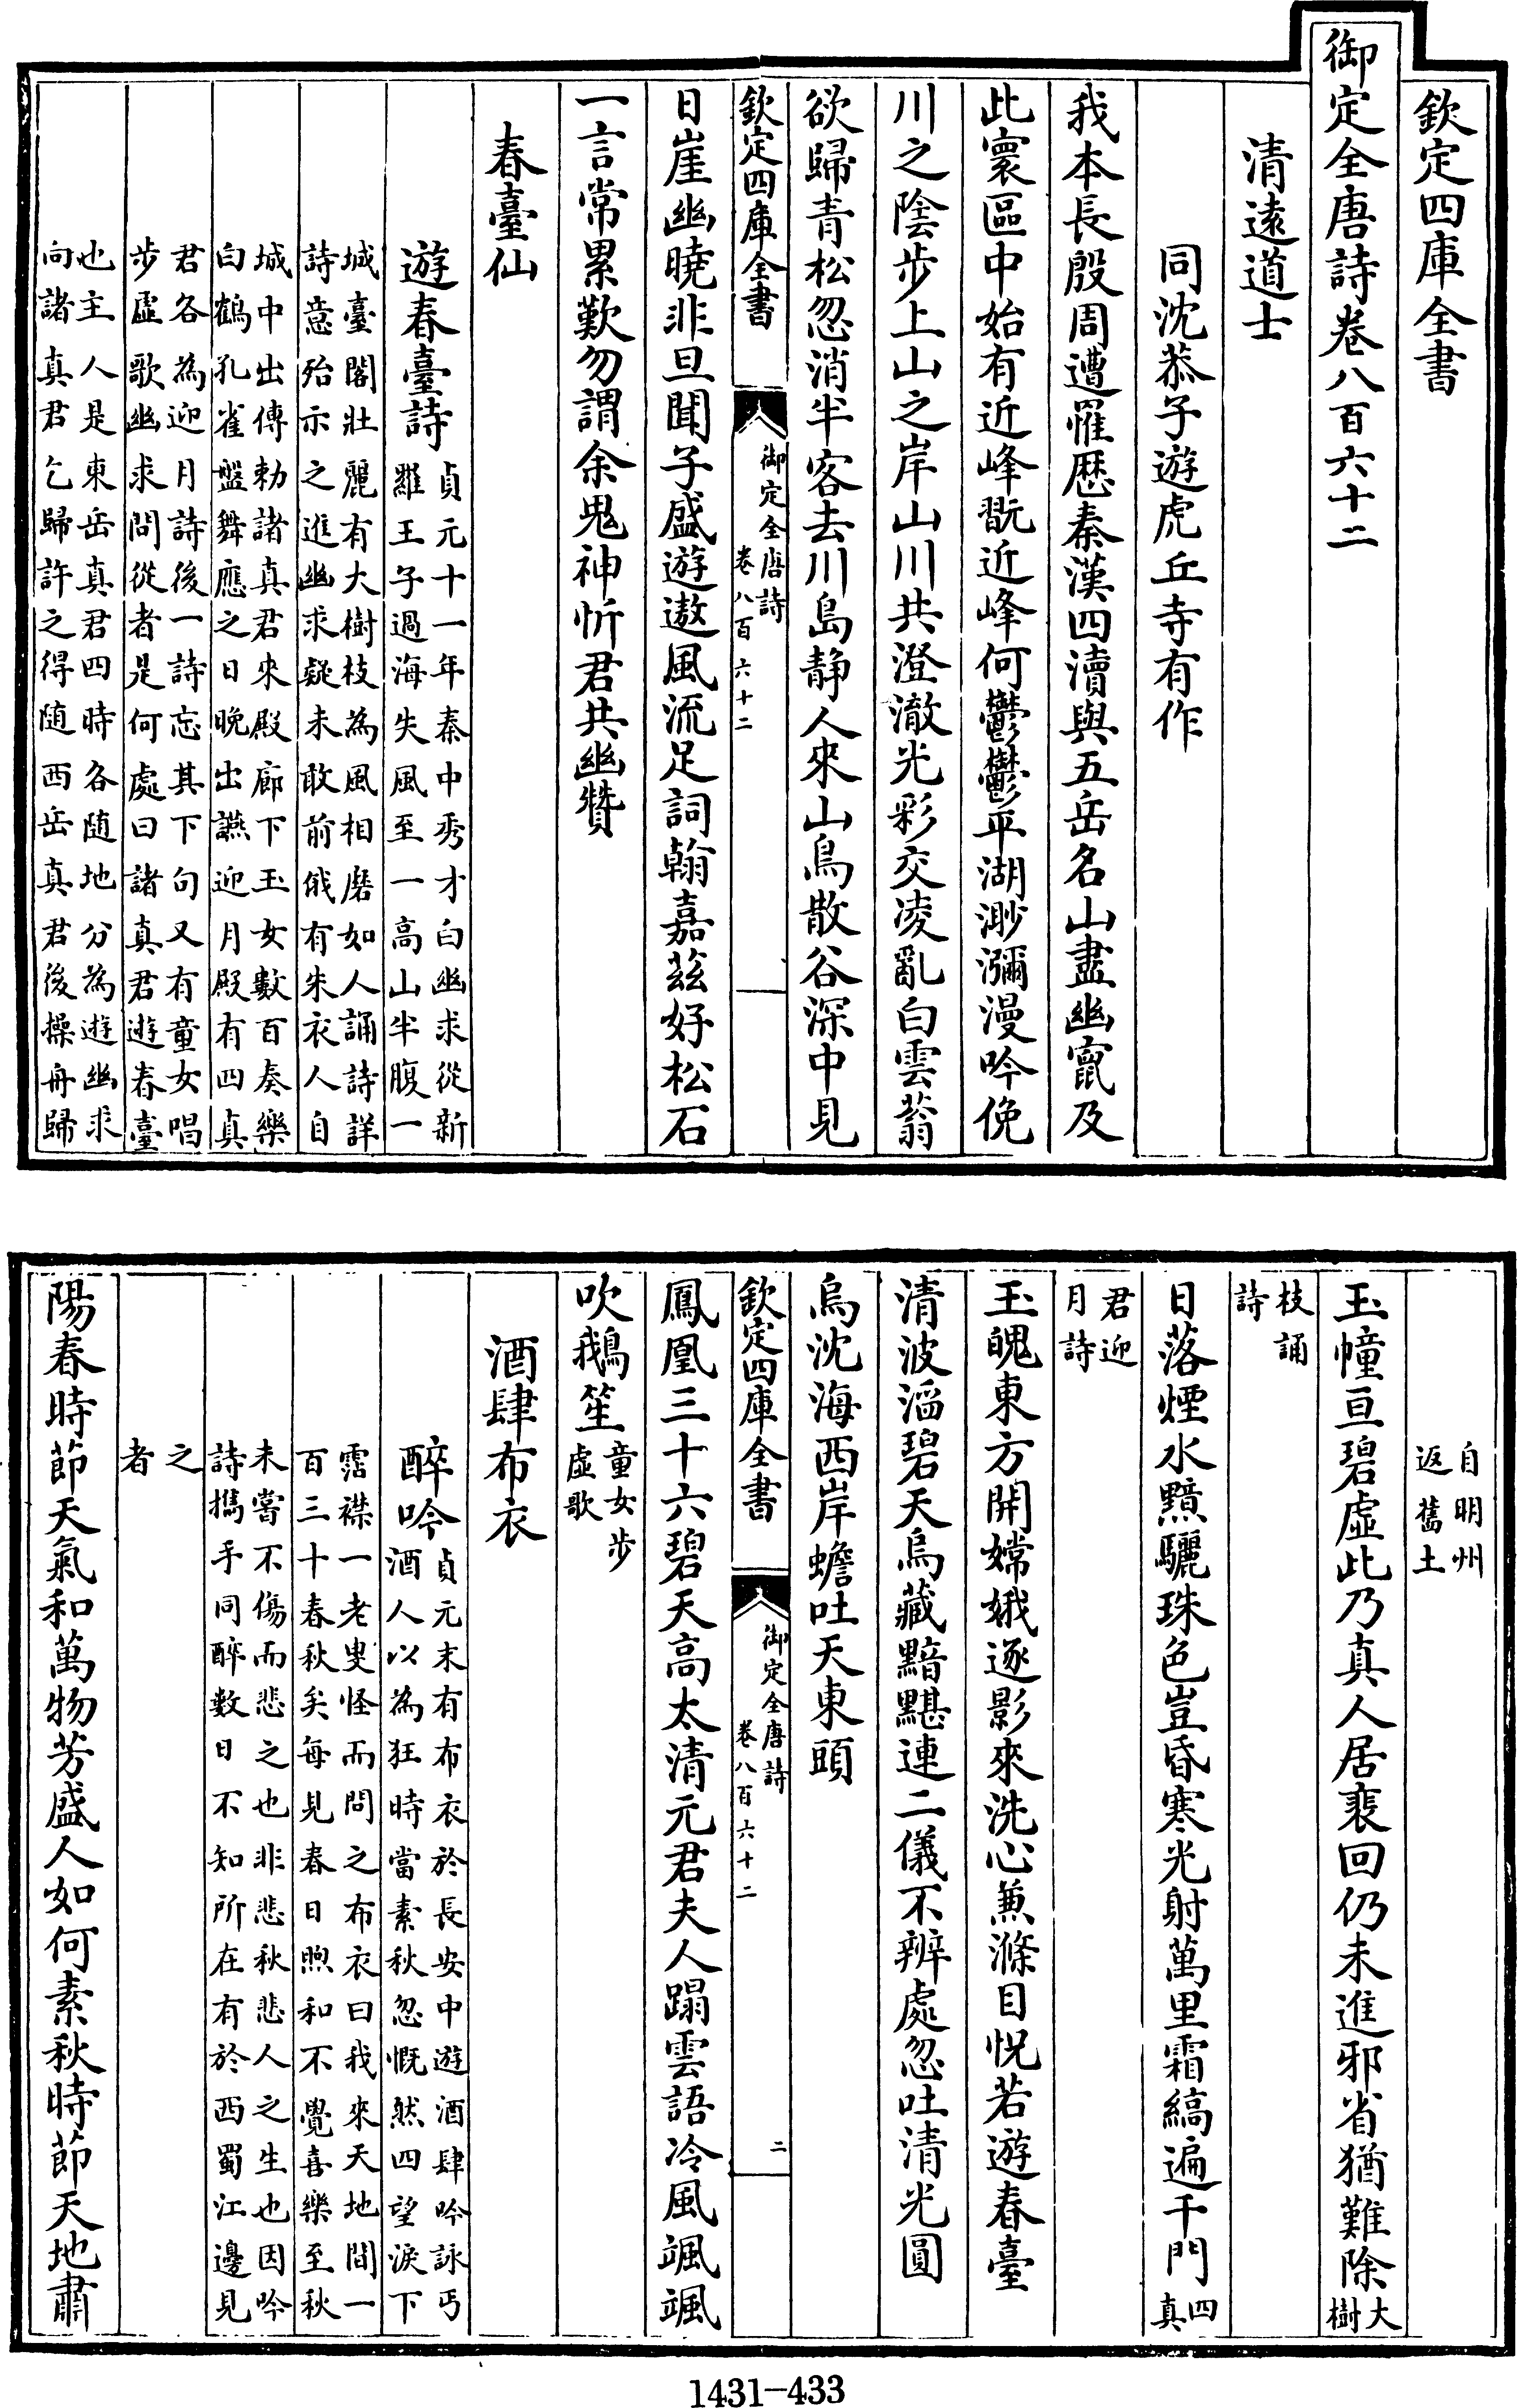 欽定四庫全書
御定全唐詩卷八百六十二
清遠道士
同沈恭子遊虎丘寺有作
我本長殷周遭罹歴秦漢四瀆與五岳名山盡幽竄及
此寰區中始有近峰翫近峰何鬱鬱平湖渺瀰漫吟俛
川之陰步上山之岸山川共澄澈光彩交凌亂白雲蓊
欲歸青松忽消半客去川島静人來山鳥散谷深中見
欽定四庫全書
御定全唐詩
卷八百六十二
日崖幽曉非旦聞子盛遊遨風流足詞翰嘉兹好松石
一言常累歎勿謂余鬼神忻君共幽贊
春臺仙
遊春臺詩
貞元十一年秦中秀才白幽求從新
羅王子過海失風至一高山半腹一
城臺閣壯麗有大樹枝為風相磨如人誦詩詳
詩意殆示之進幽求疑未敢前俄有朱衣人自
城中出傳勅諸真君來殿廊下玉女數百奏樂
白鶴孔雀盤舞應之日晚出讌迎月殿有四真
君各為迎月詩後一詩忘其下句又有童女唱
步虛歌幽求問從者是何處曰諸真君遊春臺
也主人是東岳真君四時各随地分為遊幽求
向諸真君乞歸許之得随西岳真君後操舟歸
自明州
返舊土
玉幢亘碧虛此乃真人居裵回仍未進邪省猶難除
大
樹
枝誦
詩
日落煙水黯驪珠色豈昏寒光射萬里霜縞遍千門
四
真
君迎
月詩
玉魄東方開嫦娥逐影來洗心兼滌目怳若遊春臺
清波滔碧天烏藏黯黮連二儀不辨處忽吐清光圓
烏沈海西岸蟾吐天東頭
欽定四庫全書
御定全唐詩
卷八百六十二
二
鳳凰三十六碧天高太清元君夫人蹋雲語冷風颯颯
吹鵝笙
童女步
虛歌
酒肆布衣
醉吟
貞元末有布衣於長安中遊酒肆吟詠丐
酒人以為狂時當素秋忽慨然四望淚下
霑襟一老叟怪而問之布衣曰我來天地間一
百三十春秋矣每見春日煦和不覺喜樂至秋
未嘗不傷而悲之也非悲秋悲人之生也因吟
詩擕手同醉數日不知所在有於西蜀江邊見
之
者
陽春時節天氣和萬物芳盛人如何素秋時節天地肅
1431-433